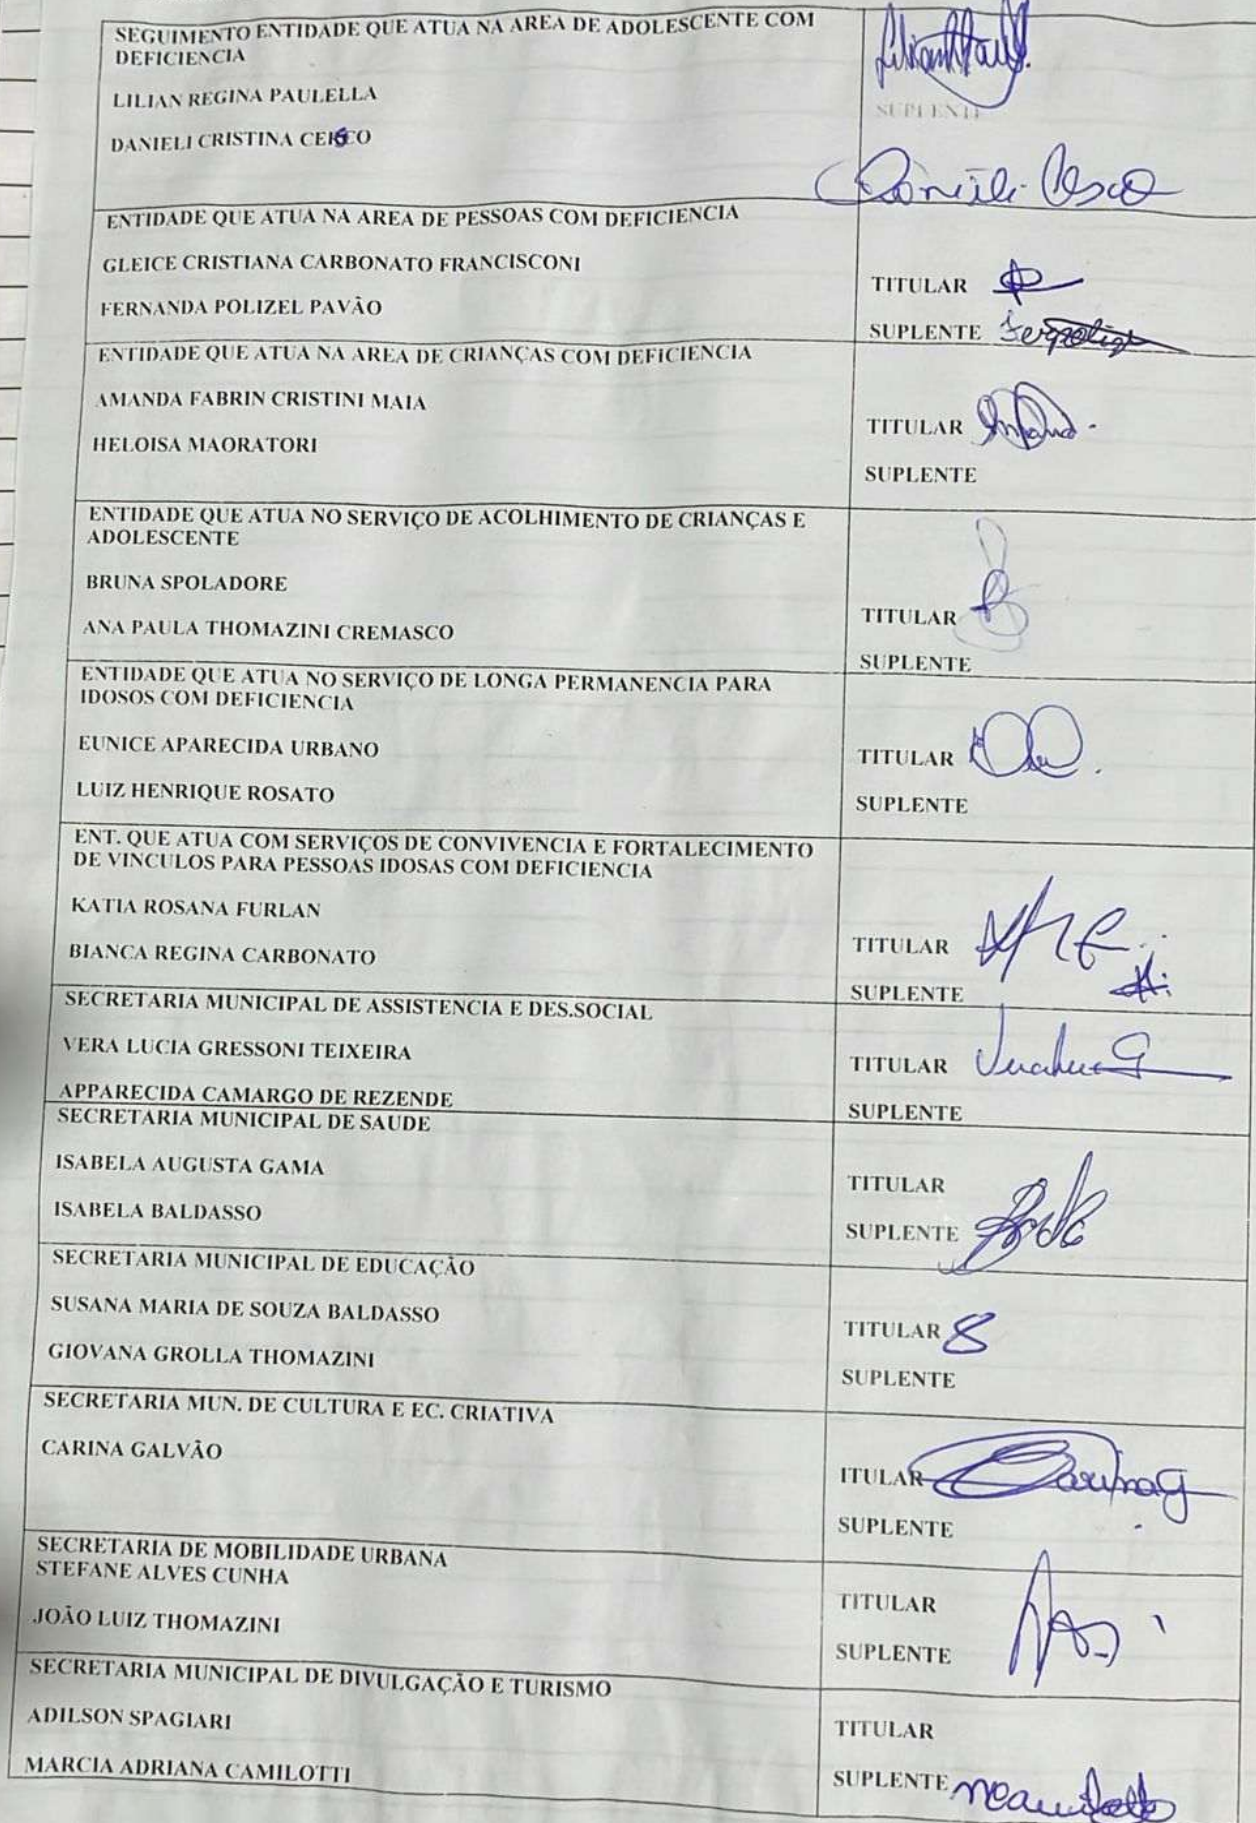 SEGUIMENTO ENTIDADE QUE ATUA NA AREA DE ADOLESCENTE COM
DEFICIENCIA
LILIAN REGINA PAULELLA
SUPLENTE
DANIELI CRISTINA CE SCO
Danieli Cesco
ENTIDADE QUE ATUA NA AREA DE PESSOAS COM DEFICIENCIA
GLEICE CRISTIANA CARBONATO FRANCISCONI
TITULAR
FERNANDA POLIZEL PAVÃO
SUPLENTE
ENTIDADE QUE ATUA NA AREA DE CRIANÇAS COM DEFICIENCIA
AMANDA FABRIN CRISTINI MAIA
TITULAR
HELOISA MAORATORI
SUPLENTE
ENTIDADE QUE ATUA NO SERVIÇO DE ACOLHIMENTO DE CRIANÇAS E
ADOLESCENTE
BRUNA SPOLADORE
TITULAR
ANA PAULA THOMAZINI CREMASCO
SUPLENTE
ENTIDADE QUE ATUA NO SERVIÇO DE LONGA PERMANENCIA PARA
IDOSOS COM DEFICIENCIA
EUNICE APARECIDA URBANO
TITULAR
LUIZ HENRIQUE ROSATO
SUPLENTE
ENT. QUE ATUA COM SERVIÇOS DE CONVIVENCIA E FORTALECIMENTO
DE VINCULOS PARA PESSOAS IDOSAS COM DEFICIENCIA
KATIA ROSANA FURLAN
TITULAR
BIANCA REGINA CARBONATO
SUPLENTE
SECRETARIA MUNICIPAL DE ASSISTENCIA E DES.SOCIAL
VERA LUCIA GRESSONI TEIXEIRA
TITULAR
APPARECIDA CAMARGO DE REZENDE
SUPLENTE
SECRETARIA MUNICIPAL DE SAUDE
ISABELA AUGUSTA GAMA
TITULAR
ISABELA BALDASSO
SUPLENTE
SECRETARIA MUNICIPAL DE EDUCAÇÃO
SUSANA MARIA DE SOUZA BALDASSO
TITULAR
GIOVANA GROLLA THOMAZINI
SUPLENTE
SECRETARIA MUN. DE CULTURA E EC. CRIATIVA
CARINA GALVÃO
ITULAR Carina G
SUPLENTE
SECRETARIA DE MOBILIDADE URBANA
STEFANE ALVES CUNHA
TITULAR
JOÃO LUIZ THOMAZINI
SUPLENTE
SECRETARIA MUNICIPAL DE DIVULGAÇÃO E TURISMO
ADILSON SPAGIARI
TITULAR
MARCIA ADRIANA CAMILOTTI
SUPLENTE MCamilotti